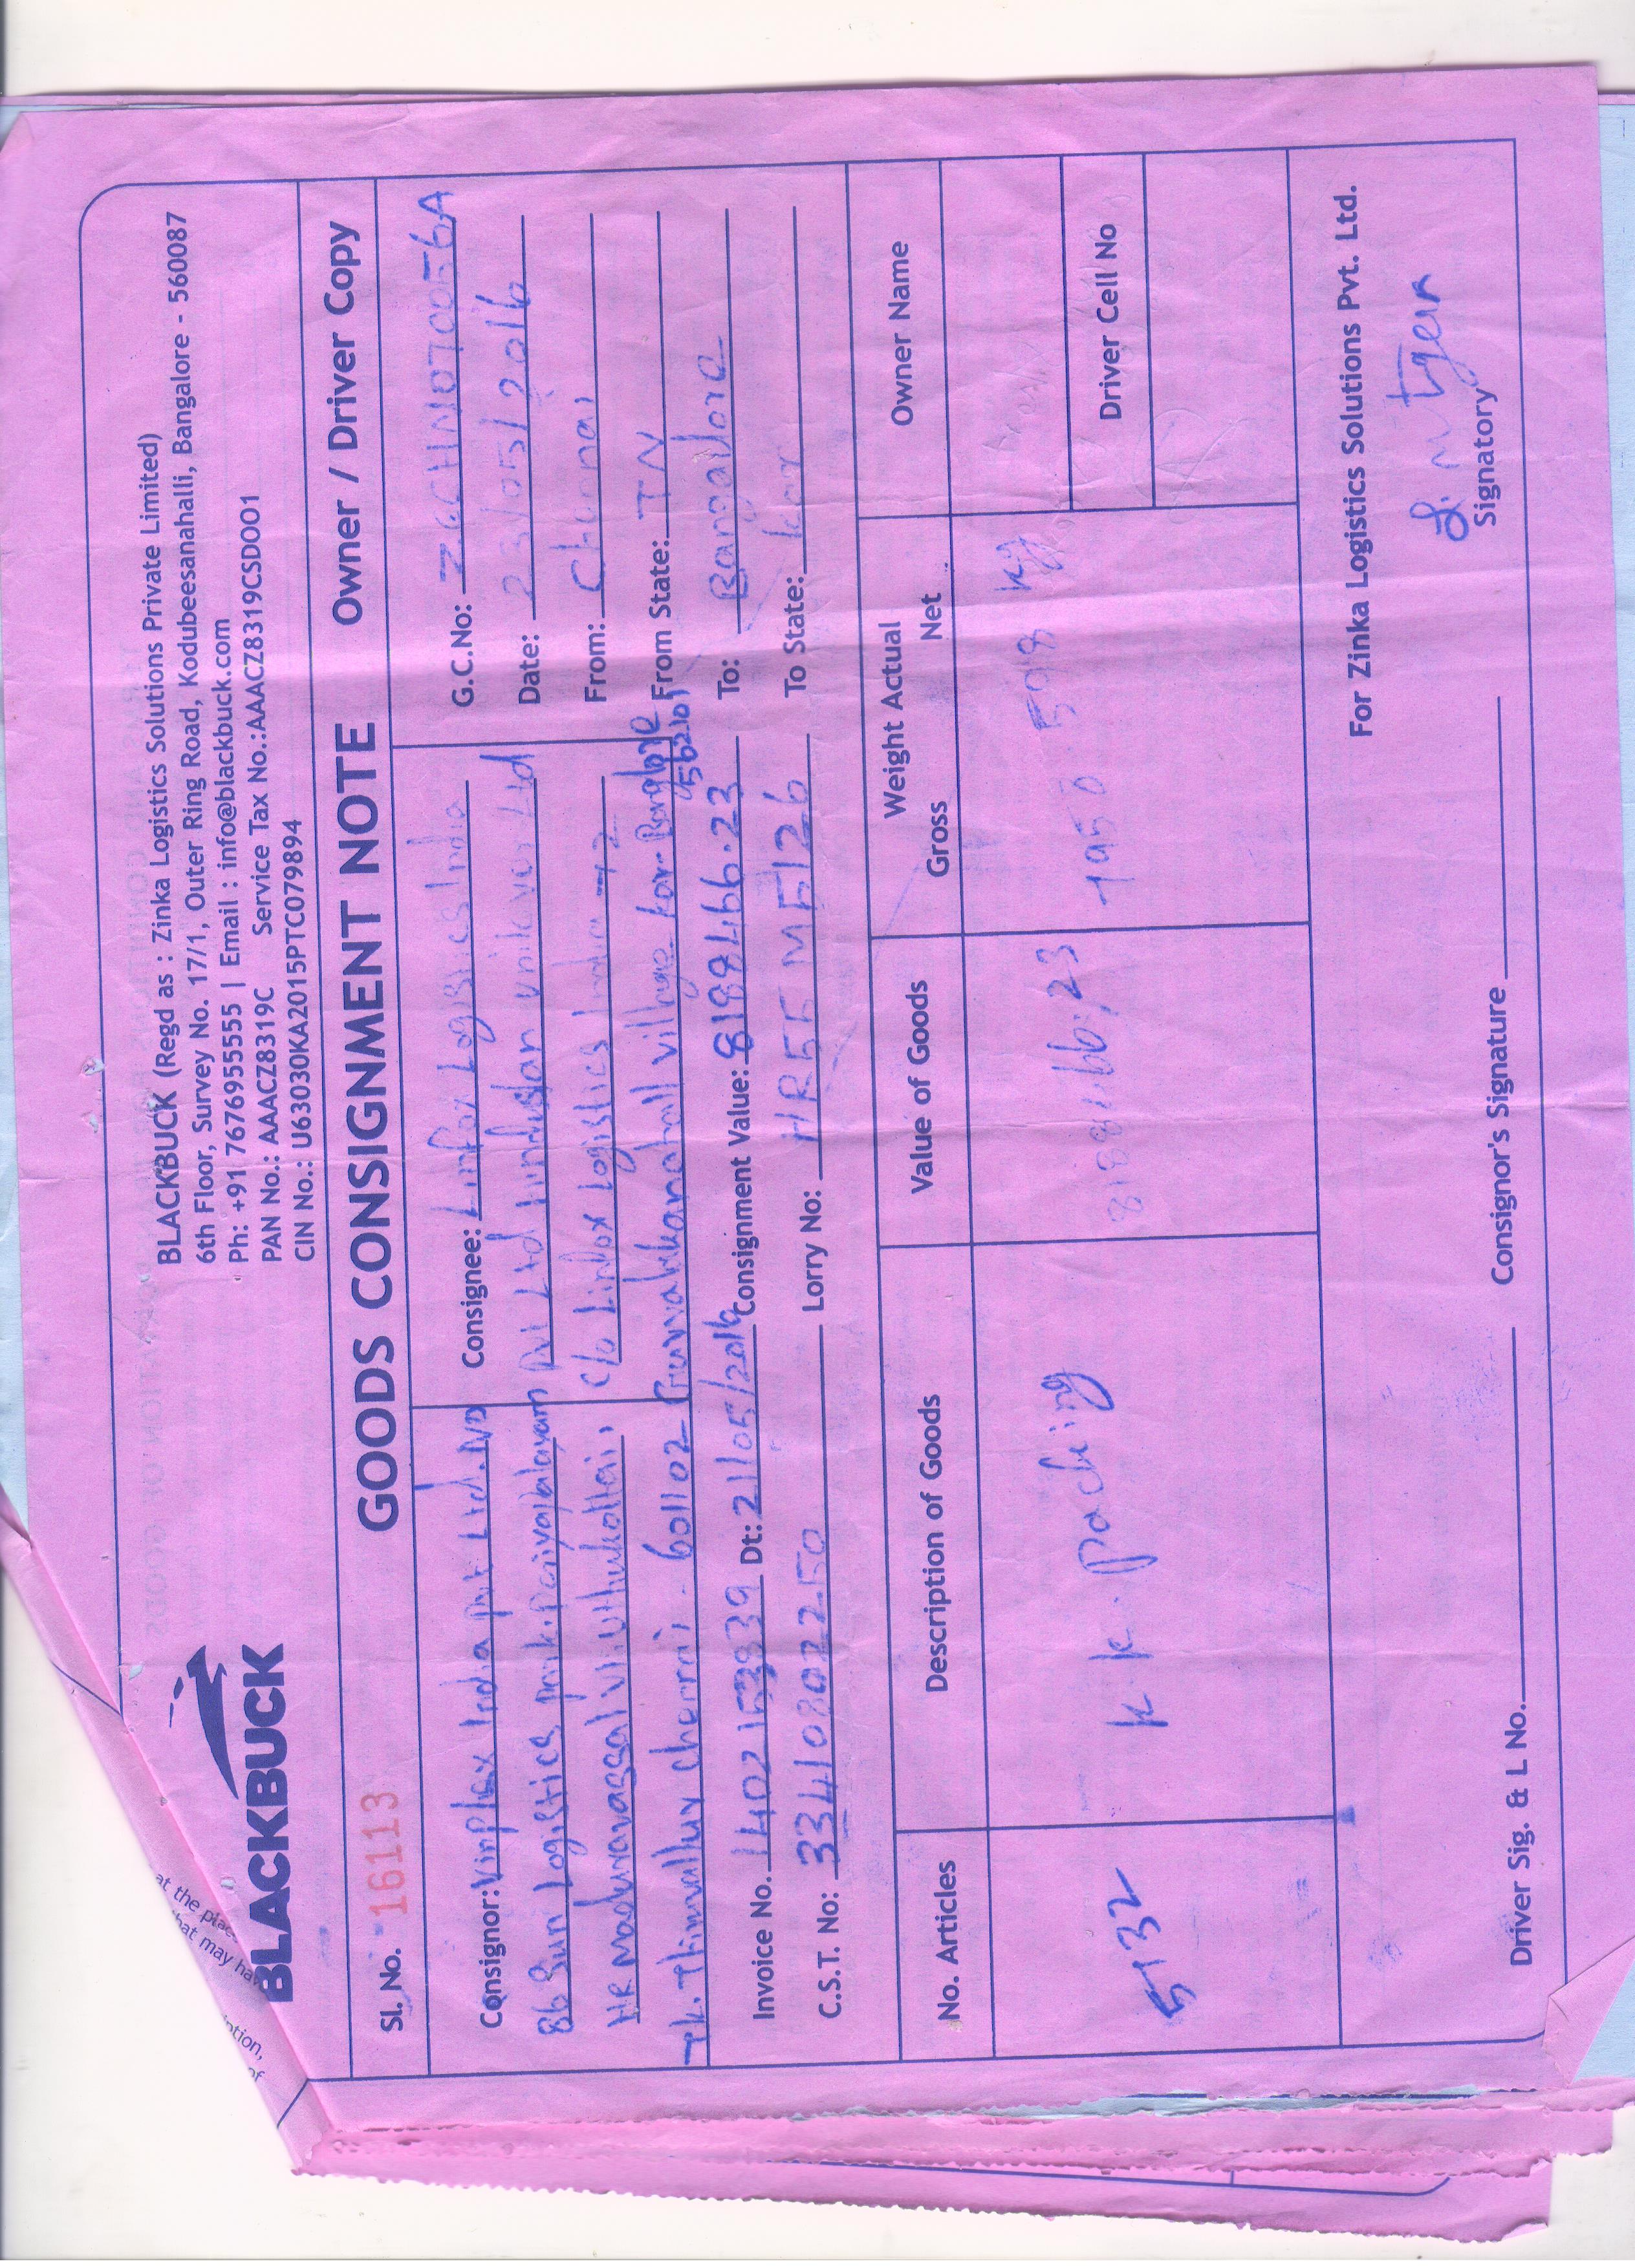 BLACKBUCK
BLACKBUCK (Regd as : Zinka Logistics Solutions Private Limited)
6th Floor, Survey No. 17/1, Outer Ring Road, Kodubeesanahalli, Bangalore - 560087
Ph: +91 7676955555 | Email : info@blackbuck.com
PAN No.: AAACZ8319C Service Tax No.:AAACZ8319CSD001
CIN No.: U63030KA2015PTC079894
Sl. No. 16113 GOODS CONSIGNMENT NOTE Owner / Driver Copy
Consignor: Vinplex India pvt Ltd. No
86 Sun Logistics park.
Chennai - 601102
Consignee: Linfox Logistics India
Pvt Ltd hindustan unilever Ltd
C/o Linfox Logistics India
village kar Banglore
562101
G.C.No:
Date: 23/05/2016
From: Chennai
From State: TN
To: Bangalore
To State: kar
Invoice No. 1402153939 Dt: 21/05/2016 Consignment Value: 8188466.23
C.S.T. No: 33410802250 Lorry No: HR55 M 5126
No. Articles Description of Goods Value of Goods Weight Actual Owner Name
Gross Net
5132 K.K. Packing 8188466/23 kg
Driver Cell No
For Zinka Logistics Solutions Pvt. Ltd.
Driver Sig. & L No. Consignor's Signature Signatory
at the place
that may have
of